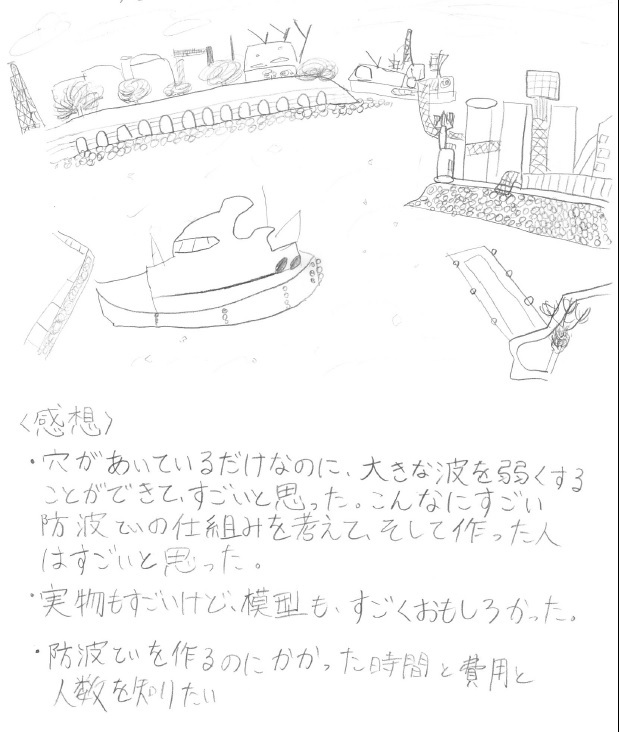 〈感想〉
・穴があいているだけなのに、大きな波を弱くする
ことができて、すごいと思った。こんなにすごい
防波ていの仕組みを考えて、そして作った人
はすごいと思った。
・実物もすごいけど、模型も、すごくおもしろかった。
・防波ていを作るのにかかった時間と費用と
人数を知りたい